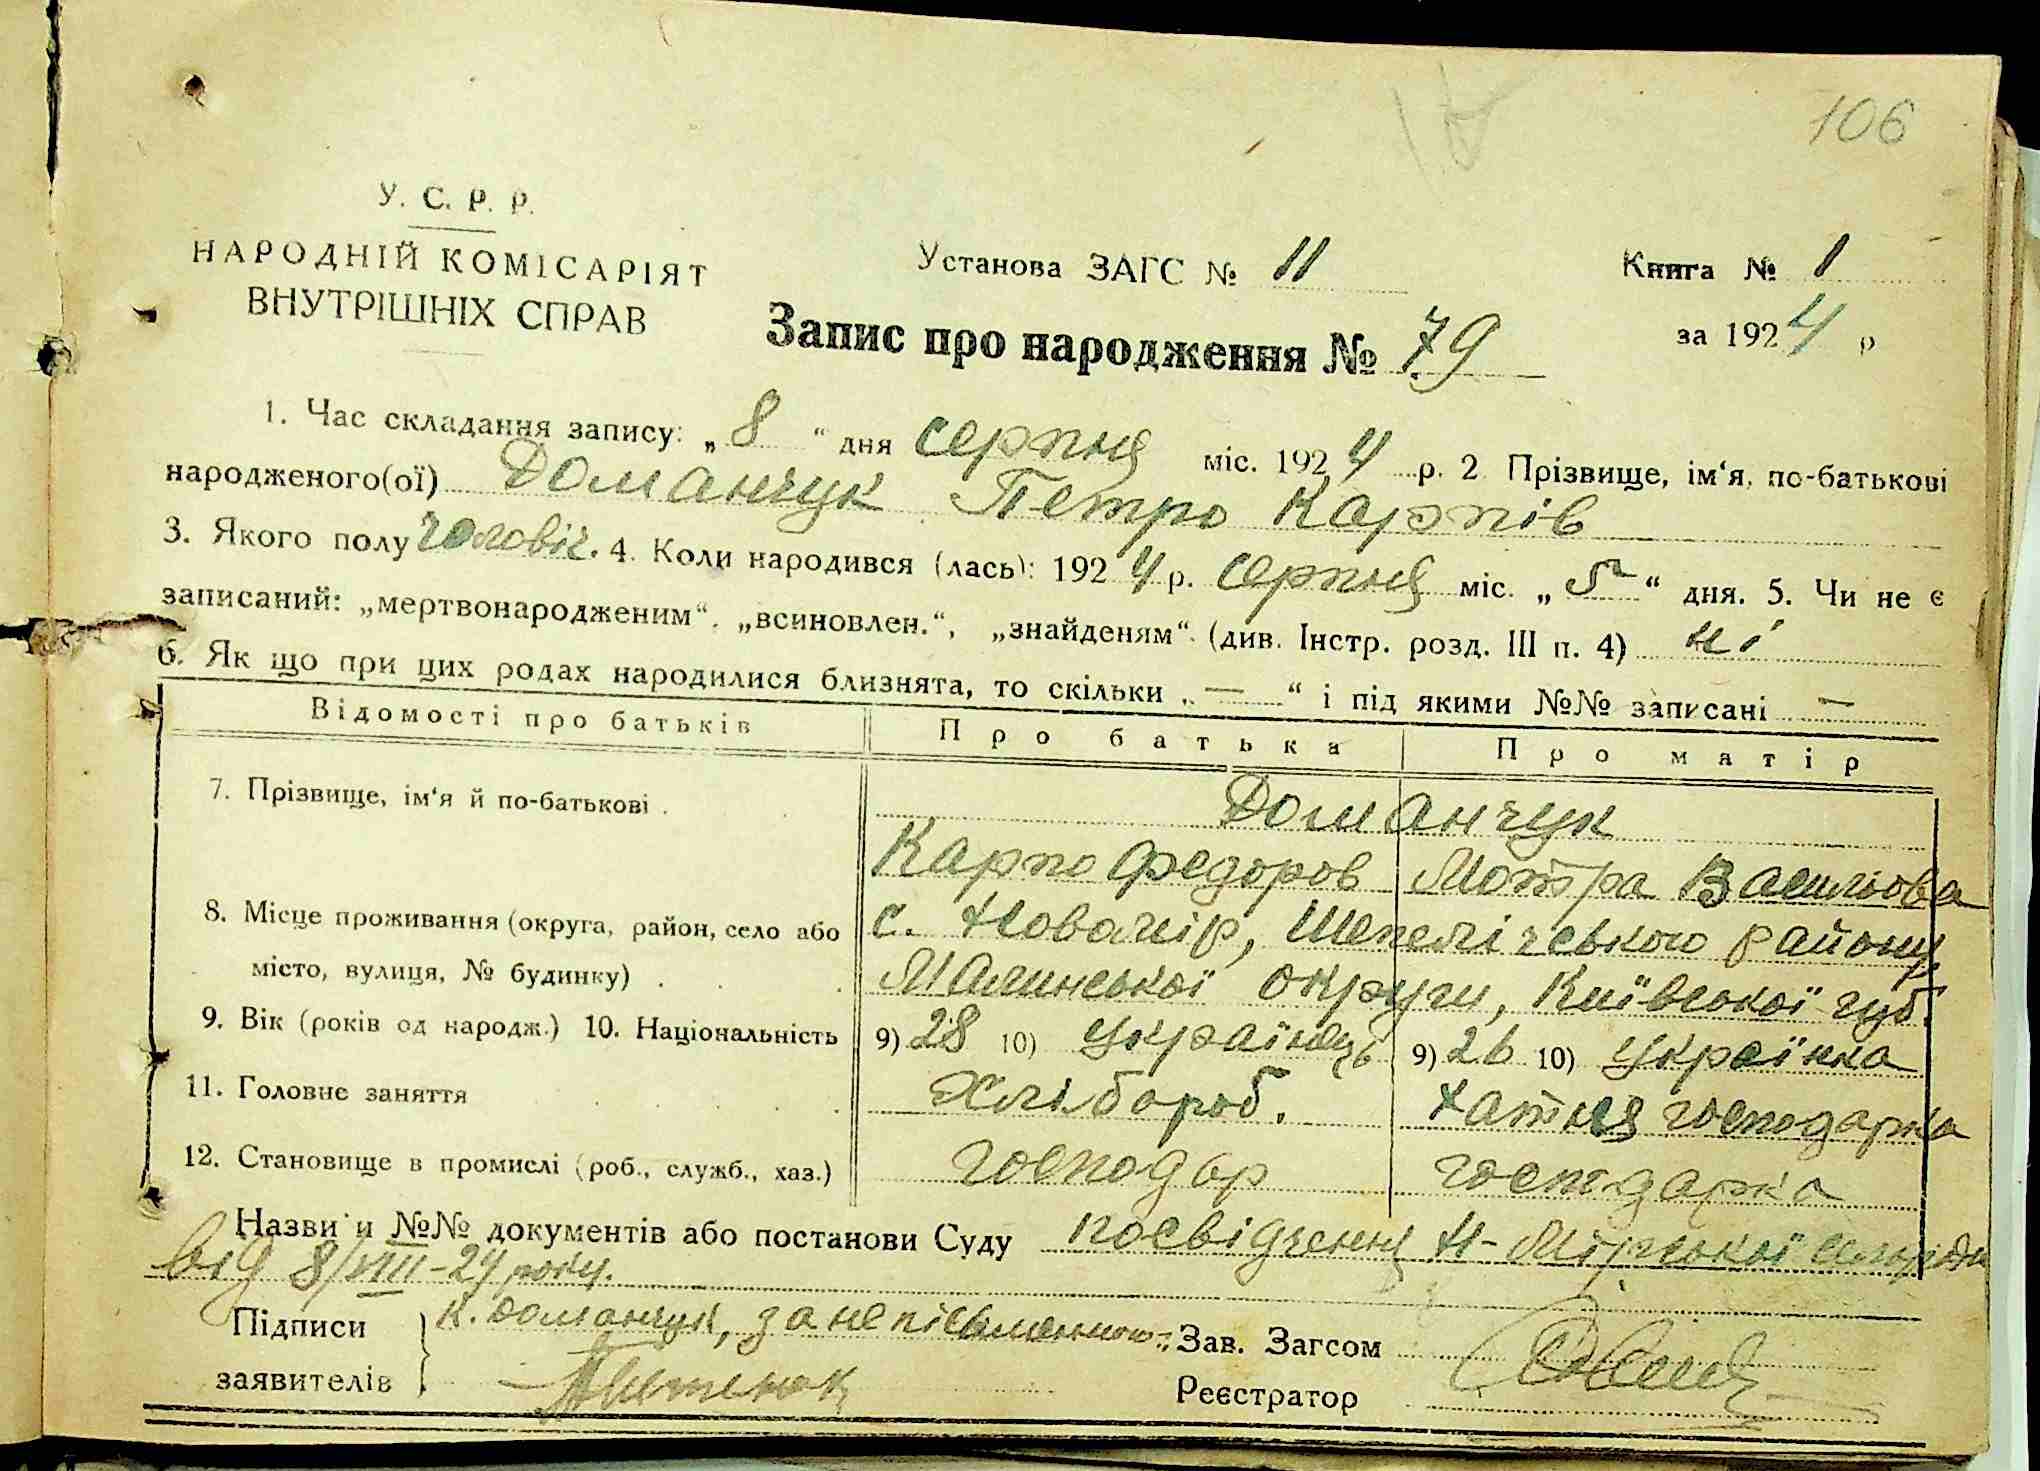 106
У. С. Р. Р.
НАРОДНІЙ КОМІСАРІЯТ
ВНУТРІШНІХ СПРАВ
Установа ЗАГС № 11
Книга № 1
Запис про народження № 79
за 1924 р
1. Час складання запису: „8“ дня серпня міс. 1924 р. 2 Прізвище, ім‘я, по-батькові
народженого(ої) Доманчук Петро Карпів
3. Якого полу чоловіч. 4. Коли народився (лась): 1924 р. серпня міс. „5“ дня. 5. Чи не є
записаний: „мертвонародженим“, „всиновлен.“, „знайденям“ (див. Інстр. розд. III п. 4) ні
6. Як що при цих родах народилися близнята, то скільки „—“ і під якими №№ записані —
Відомості про батьків Про батька Про матір
7. Прізвище, ім‘я й по-батькові . Доманчук
Карпо Федоров Мотра Васильова
8. Місце проживання (округа, район, село або с. Новамір, Шепелічського району,
місто, вулиця, № будинку) . Малинської округи, Київської губ.
9. Вік (років од народж.) 10. Національність 9) 28 10) українець 9) 26 10) українка
11. Головне заняття хлібороб. хатня господарка
12. Становище в промислі (роб., служб., хаз.) господар господарка
Назви и №№ документів або постанови Суду посвідчення Н-Мірської сільради
від 8/VIII-24 року.
Підписи К. Доманчук, за неписьменного: Зав. Загсом
заявителів
Реєстратор